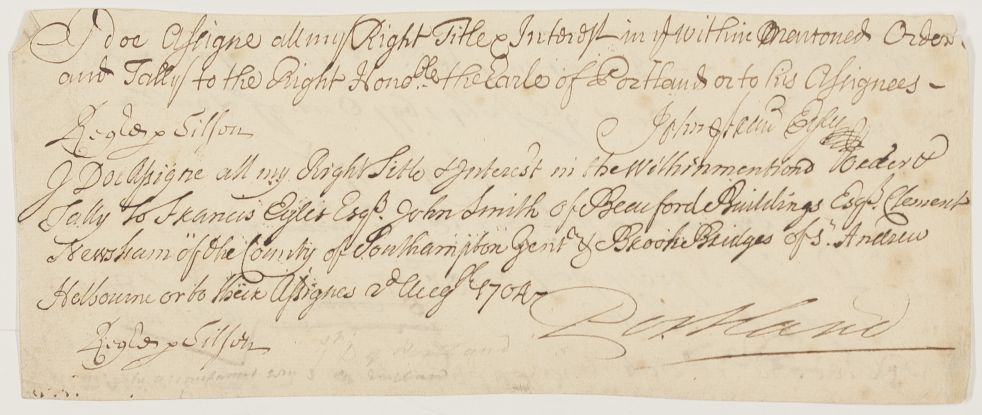 I doe Assigne all my Right Title & Interest in yͤ within mentoned Order
and Tally to the Right Honoᵇˡᵉ the Earle of Portland or to his Assignees –
John
J Doe Assigne all my Right Title & Interest in the Withinmentiond Order &
Tally to Francis Eyles Esqʳ. John Smith of Beauford Buildings Esqʳ. Clement
Newsham of the County of Southampton Gentˢ & Brook Bridges of Sᵗ. Andrew
Holbourne or to their Assignes 2ᵈ Augˢᵗ 1704
Portland